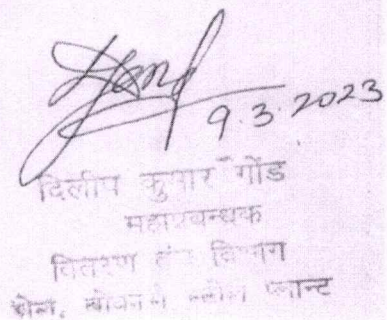 9.3.2023
दिलीप कुमार गोंड
महाप्रबन्धक
वितरण तंत्र विभाग
सेल, बोकारो स्टील प्लान्ट